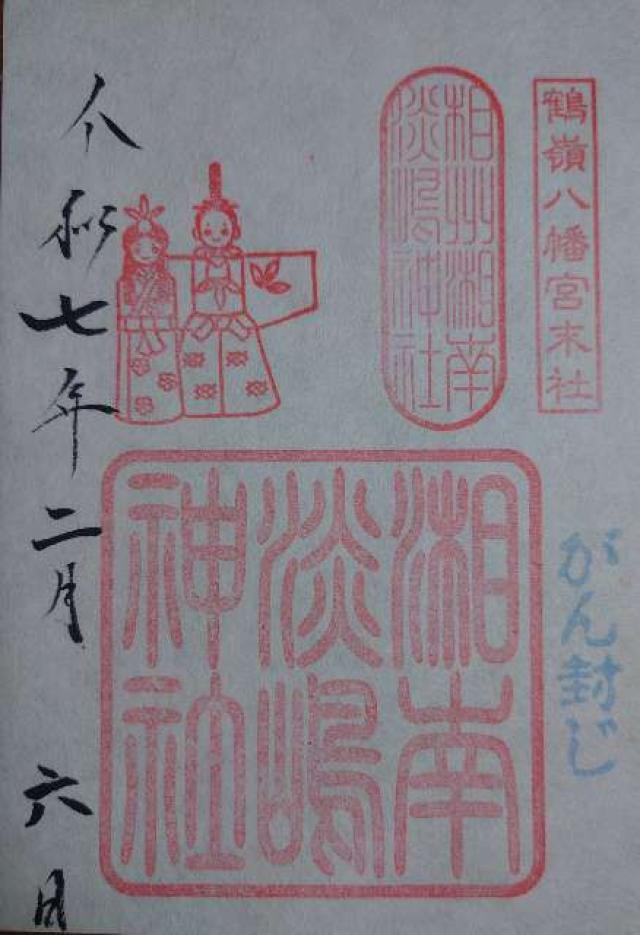 鶴嶺八幡宮末社
相州湘南
淡嶋神社
がん封じ
湘南
淡嶋
神社
令和七年二月六日